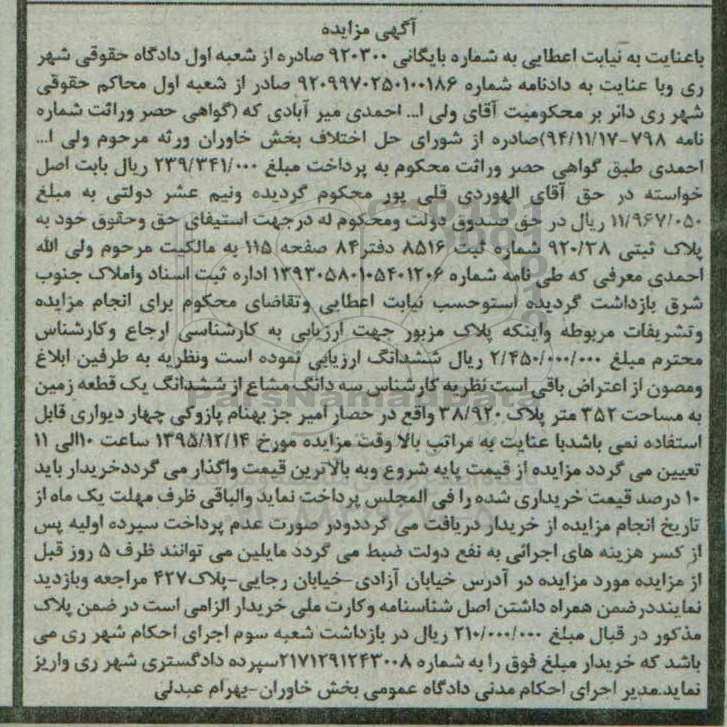 آگهی مزایده
باعنایت به نیابت اعطایی به شماره بایگانی ۹۲۰۳۰۰ صادره از شعبه اول دادگاه حقوقی شهر
ری وبا عنایت به دادنامه شماره ۹۲۰۹۹۷۰۲۵۰۱۰۰۱۸۶ صادر از شعبه اول محاکم حقوقی
شهر ری دائر بر محکومیت آقای ولی ا... احمدی میر آبادی که (گواهی حصر وراثت شماره
نامه ۷۹۸-۹۴/۱۱/۱۷)صادره از شورای حل اختلاف بخش خاوران ورثه مرحوم ولی ا...
احمدی طبق گواهی حصر وراثت محکوم به پرداخت مبلغ ۲۳۹/۳۴۱/۰۰۰ ریال بابت اصل
خواسته در حق آقای الهوردی قلی پور محکوم گردیده ونیم عشر دولتی به مبلغ
۱۱/۹۶۷/۰۵۰ ریال در حق صندوق دولت ومحکوم له درجهت استیفای حق وحقوق خود به
پلاک ثبتی ۹۲۰/۳۸ شماره ثبت ۸۵۱۶ دفتر۸۴ صفحه ۱۱۵ به مالکیت مرحوم ولی الله
احمدی معرفی که طی نامه شماره ۱۳۹۳۰۵۸۰۱۰۵۴۰۱۲۰۶ اداره ثبت اسناد واملاک جنوب
شرق بازداشت گردیده استوحسب نیابت اعطایی وتقاضای محکوم برای انجام مزایده
وتشریفات مربوطه واینکه پلاک مزبور جهت ارزیابی به کارشناسی ارجاع وکارشناس
محترم مبلغ ۲/۴۵۰/۰۰۰/۰۰۰ ریال ششدانگ ارزیابی نموده است ونظریه به طرفین ابلاغ
ومصون از اعتراض باقی است نظریه کارشناس سه دانگ مشاع از ششدانگ یک قطعه زمین
به مساحت ۳۵۲ متر پلاک ۳۸/۹۲۰ واقع در حصار امیر جز بهنام پازوکی چهار دیواری قابل
استفاده نمی باشدبا عنایت به مراتب بالا وقت مزایده مورخ ۱۳۹۵/۱۲/۱۴ ساعت ۱۰الی ۱۱
تعیین می گردد مزایده از قیمت پایه شروع وبه بالاترین قیمت واگذار می گرددخریدار باید
۱۰ درصد قیمت خریداری شده را فی المجلس پرداخت نماید والباقی ظرف مهلت یک ماه از
تاریخ انجام مزایده از خریدار دریافت می گرددودر صورت عدم پرداخت سپرده اولیه پس
از کسر هزینه های اجرائی به نفع دولت ضبط می گردد مایلین می توانند ظرف ۵ روز قبل
از مزایده مورد مزایده در آدرس خیابان آزادی-خیابان رجایی-پلاک۴۲۷ مراجعه وبازدید
نماینددرضمن همراه داشتن اصل شناسنامه وکارت ملی خریدار الزامی است در ضمن پلاک
مذکور در قبال مبلغ ۲۱۰/۰۰۰/۰۰۰ ریال در بازداشت شعبه سوم اجرای احکام شهر ری می
باشد که خریدار مبلغ فوق را به شماره ۲۱۷۱۲۹۱۲۴۳۰۰۸سپرده دادگستری شهر ری واریز
نماید.مدیر اجرای احکام مدنی دادگاه عمومی بخش خاوران-بهرام عبدلی
ParsNamadData